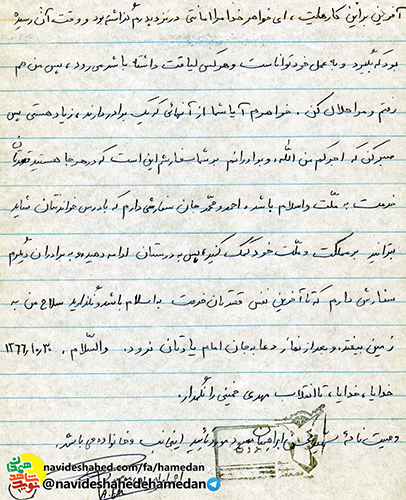 آفرین بر این کار هایت، ای خواهر خدا مرا امانتی در نزد پدرم گذاشته بود و وقت آن رسیده
بود که بگیرد و به عمل خود توانا است و هر کس لیاقت داشته باشد می رود، پس من هم
رفتم و مرا حلال کن. خواهرم آیا شما از آنهائی که یک برادر دارند، زیاد هستی پس
صبر کن که اجرکم من الله، و برادرانم بر شما سفارشم این است که در هر جا هستید قصدتان
خدمت به ملت و اسلام باشد. احمد و محمد جان سفارشی دارم که با درس خواندنتان شاید
بتوانید بر مملکت و ملت خود کمک کنید، پس به درستان ادامه دهید و به برادران دیگرم
سفارش دارم که تا آخرین نفس قصدتان خدمت به اسلام باشد و نگذارید سلاح من به
زمین بیفتد. و بعد از نماز دعا به جان امام یادتان نرود. والسلام. ۱۳۶۶/۱۰/۳۰
خدایا، خدایا، تا انقلاب مهدی خمینی را نگهدار.
وصیت نامهٔ شهید ابراهیم مورد تأیید اینجانب و خانواده می باشد.
navideshahed.com/fa/hamedan
@navideshahedehamedan